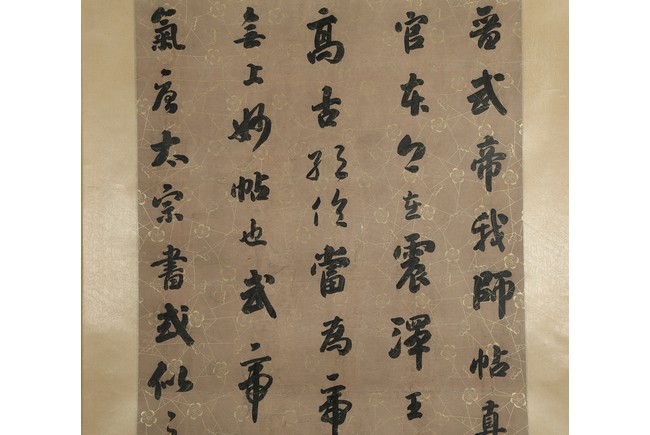 晉武帝我師帖真
官本今在震澤王
高古絕倫當為帝
無上妙帖也武帝
氣唐太宗書或似